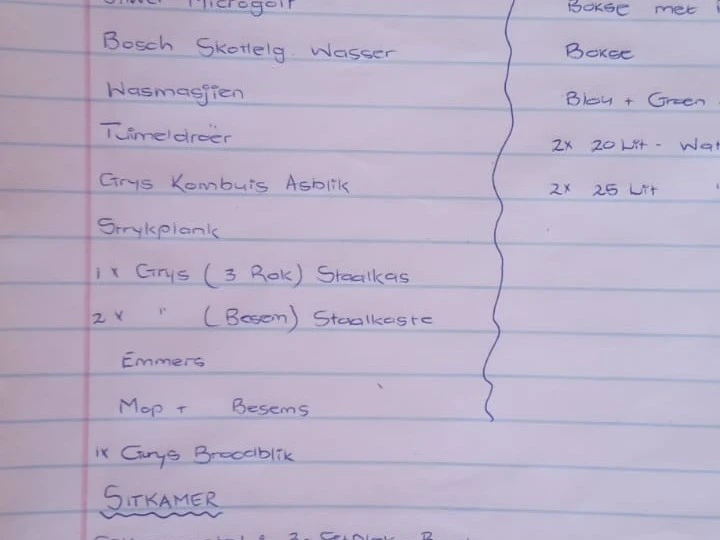 Microgolf
Bosch Skottelg. Wasser
Wasmasjien
Tuimeldroër
Grys Kombuis Asblik
Strykplank
1x Grys (3 Rak) Staalkas
2x " (Besem) Staalkaste
Emmers
Mop + Besems
1x Grys Broodblik
SITKAMER
Bokse met
Bokse
Blou + Groen
2x 20 Lit - Wat
2x 25 Lit